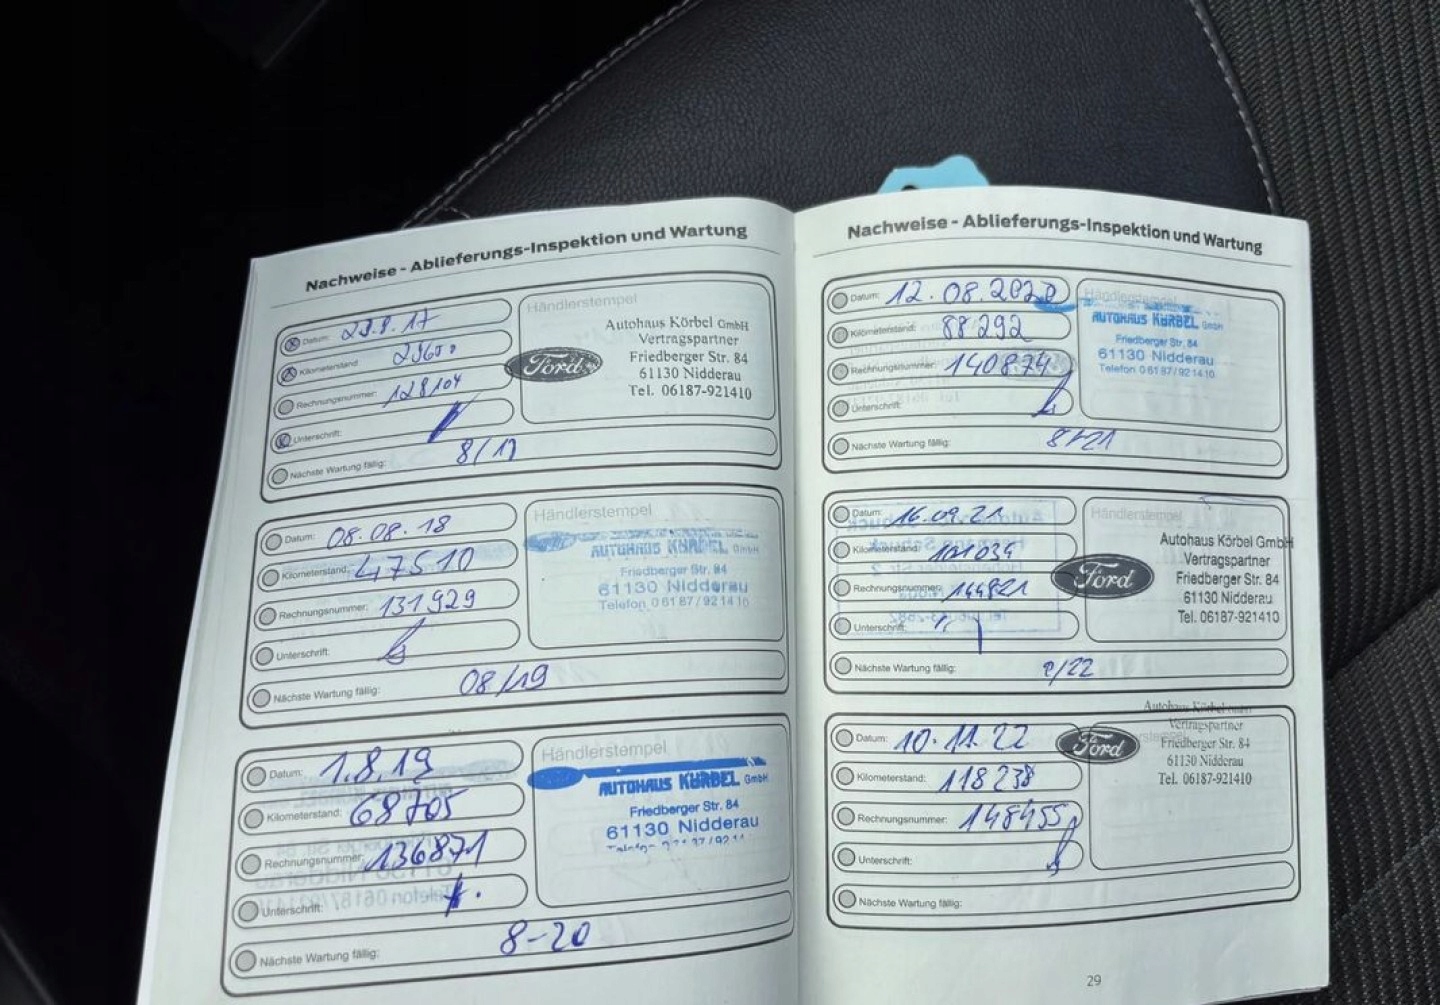 Nachweise - Ablieferungs-Inspektion und Wartung
Datum: 29.8.17
Kilometerstand
Rechnungsnummer: 128104
Unterschrift:
Nächste Wartung fällig:
Händlerstempel
Autohaus Körbel GmbH
Vertragspartner
Ford
Friedberger Str. 84
61130 Nidderau
Tel. 06187-921410
Datum: 08.08.18
Kilometerstand: 47510
Rechnungsnummer: 131929
Unterschrift:
Nächste Wartung fällig: 08/19
Händlerstempel
AUTOHAUS KÖRBEL GmbH
Friedberger Str. 84
61130 Nidderau
Telefon 06187/921410
Datum: 1.8.19
Kilometerstand: 68705
Rechnungsnummer: 136871
Unterschrift:
Nächste Wartung fällig: 8-20
Händlerstempel
AUTOHAUS KÖRBEL GmbH
Friedberger Str. 84
61130 Nidderau
Nachweise - Ablieferungs-Inspektion und Wartung
Datum: 12.08.2020
Kilometerstand: 88292
Rechnungsnummer: 140874
Unterschrift:
Nächste Wartung fällig: 8/21
Händlerstempel
AUTOHAUS KÖRBEL GmbH
Friedberger Str. 84
61130 Nidderau
Telefon 06187/921410
Datum: 16.09.21
Kilometerstand: 101034
Rechnungsnummer: 144821
Unterschrift:
Nächste Wartung fällig: 9/22
Händlerstempel
Autohaus Körbel GmbH
Vertragspartner
Ford
Friedberger Str. 84
61130 Nidderau
Tel. 06187-921410
Datum: 10.11.22
Kilometerstand: 118238
Rechnungsnummer: 148455
Unterschrift:
Nächste Wartung fällig:
Autohaus Körbel GmbH
Vertragspartner
Ford
Friedberger Str. 84
61130 Nidderau
Tel. 06187-921410
29